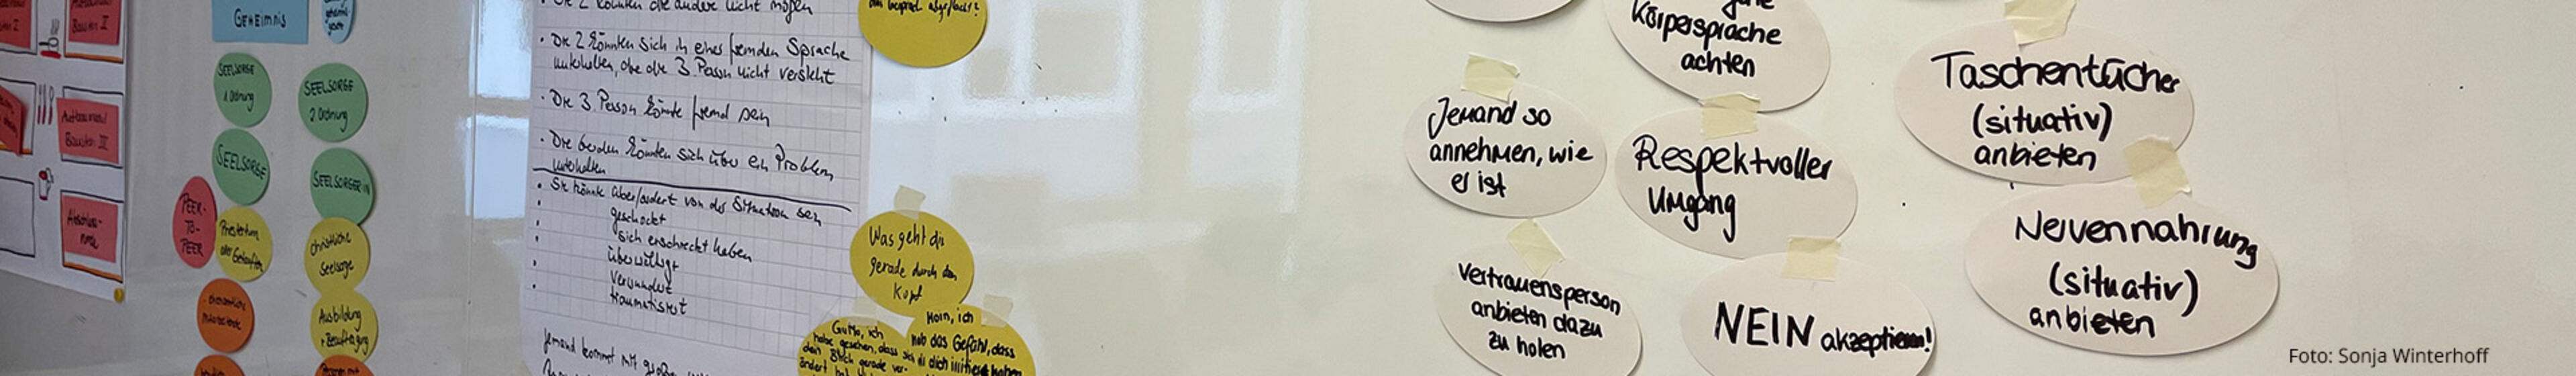 GEHEIMNIS
SEELSORGE
1 Ordnung
SEELSORGE
2 Ordnung
SEELSORGE
SEELSORGER IN
PEER-
TO-
PEER
Priestertum
aller Getauften
christliche
Seelsorge
Ausbildung
+ Beauftragung
ehrenamtliche
Mitarbeitende
Baustein III
Die 2 könnten die andere nicht mögen
• Die 2 könnten sich in einer fremden Sprache
unterhalten, die die 3. Person nicht versteht
• Die 3. Person könnte fremd sein
• Die beiden könnten sich über ein Problem
unterhalten
• Sie könnte überfordert von der Situation sein
• geschockt
• sich erschreckt haben
• überwältigt
• verwundert
• traumatisiert
Jemand kommt mit
Was geht dir
gerade durch den
Kopf
GuMo, ich
habe gesehen, dass sich
dein Blick gerade ver-
ändert hat
Moin, ich
hab das Gefühl, dass
Körpersprache
achten
Jemand so
annehmen, wie
er ist
Respektvoller
Umgang
Taschentücher
(situativ)
anbieten
Vertrauensperson
anbieten dazu
zu holen
NEIN akzeptieren!
Nervennahrung
(situativ)
anbieten
Foto: Sonja Winterhoff